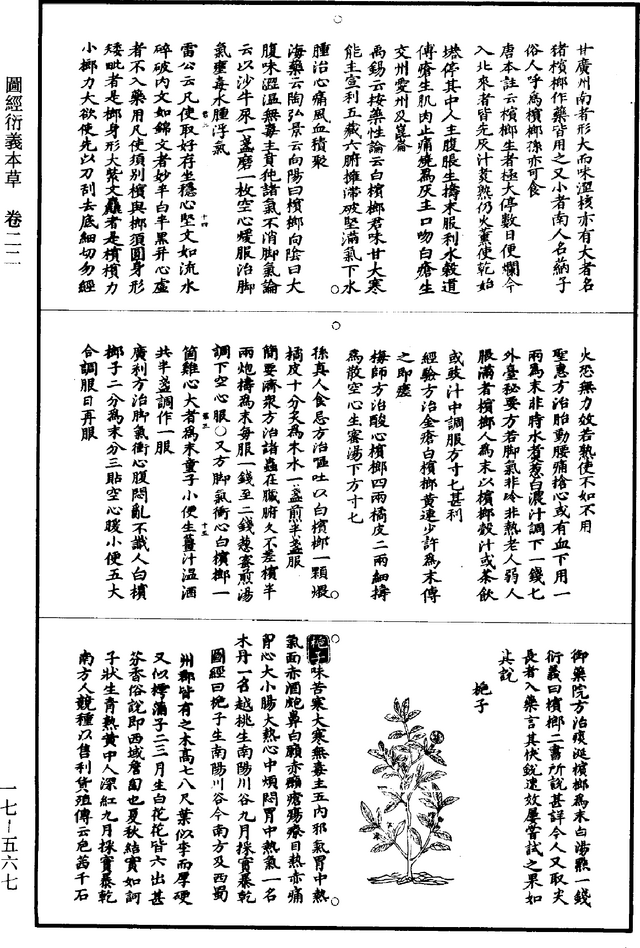 圖經衍義本草　卷二二
一七—五六七
甘廣州南者形大而味澀核亦有大者名
猪檳榔作藥皆用之又小者南人名蒳子
俗人呼為檳榔孫亦可食
唐本註云檳榔生者極大停數日便爛今
入北來者皆先灰汁煑熟仍火薰使乾始
堪停其中人主腹脹生擣末服利水穀道
傅瘡生肌肉止痛燒為灰主口吻白瘡生
交州愛州及崑崙
禹錫云按藥性論云白檳榔君味甘大寒
能主宣利五藏六腑擁滯破堅滿氣下水
腫治心痛風血積聚
海藥云陶弘景云向陽曰檳榔向陰曰大
腹味澀溫無毒主賁㹠諸氣不消脚氣論
云以沙牛尿一盞磨一枚空心煖服治脚
氣壅毒水腫浮氣
雷公云凡使取好存坐穩心堅文如流水
碎破內文如錦文者妙半白半黑并心虛
者不入藥用凡使須別檳與榔須圓身形
矮毗者是榔身形大紫文麤者是檳檳力
小榔力大欲使先以刀刮去底細切勿經
火恐無力效若熟使不如不用
聖惠方治胎動腰痛搶心或有血下用一
兩為末非時水煑葱白濃汁調下一錢七
外臺秘要方若脚氣非冷非熱老人弱人
服滿者檳榔人為末以檳榔殼汁或茶飲
或豉汁中調服方寸七甚利
經驗方治金瘡白檳榔黃連少許為末傅
之即瘥
梅師方治酸心檳榔四兩橘皮二兩細擣
為散空心生蜜湯下方寸七
孫真人食忌方治嘔吐以白檳榔一顆煨
橘皮十分炙為末水一盞煎半盞服
簡要濟衆方治諸蟲在臟腑久不差檳半
兩炮擣為末每服一錢至二錢葱蜜煎湯
調下空心服○又方脚氣衝心白檳榔一
箇雞心大者為末童子小便生薑汁溫酒
共半盞調作一服
廣利方治脚氣衝心腹悶亂不識人白檳
榔子二分為末分三貼空心暖小便五大
合調服日再服
御藥院方治痰涎檳榔為末白湯點一錢
衍義曰檳榔二書所說甚詳今人又取尖
長者入藥言其快銳速效屢嘗試之果如
其說
梔子
梔子味苦寒大寒無毒主五內邪氣胃中熱
氣面赤酒皰皶鼻白癩赤癩瘡瘍療目熱赤痛
胷心大小腸大熱心中煩悶胃中熱氣一名
木丹一名越桃生南陽川谷九月採實暴乾
圖經曰梔子生南陽川谷今南方及西蜀
州郡皆有之木高七八尺葉似李而厚硬
又似樗蒲子二三月生白花花皆六出甚
芬香俗說即西域詹匐也夏秋結實如訶
子狀生青熟黃中人深紅九月採實暴乾
南方人競種以售利貨殖傳云巵茜千石